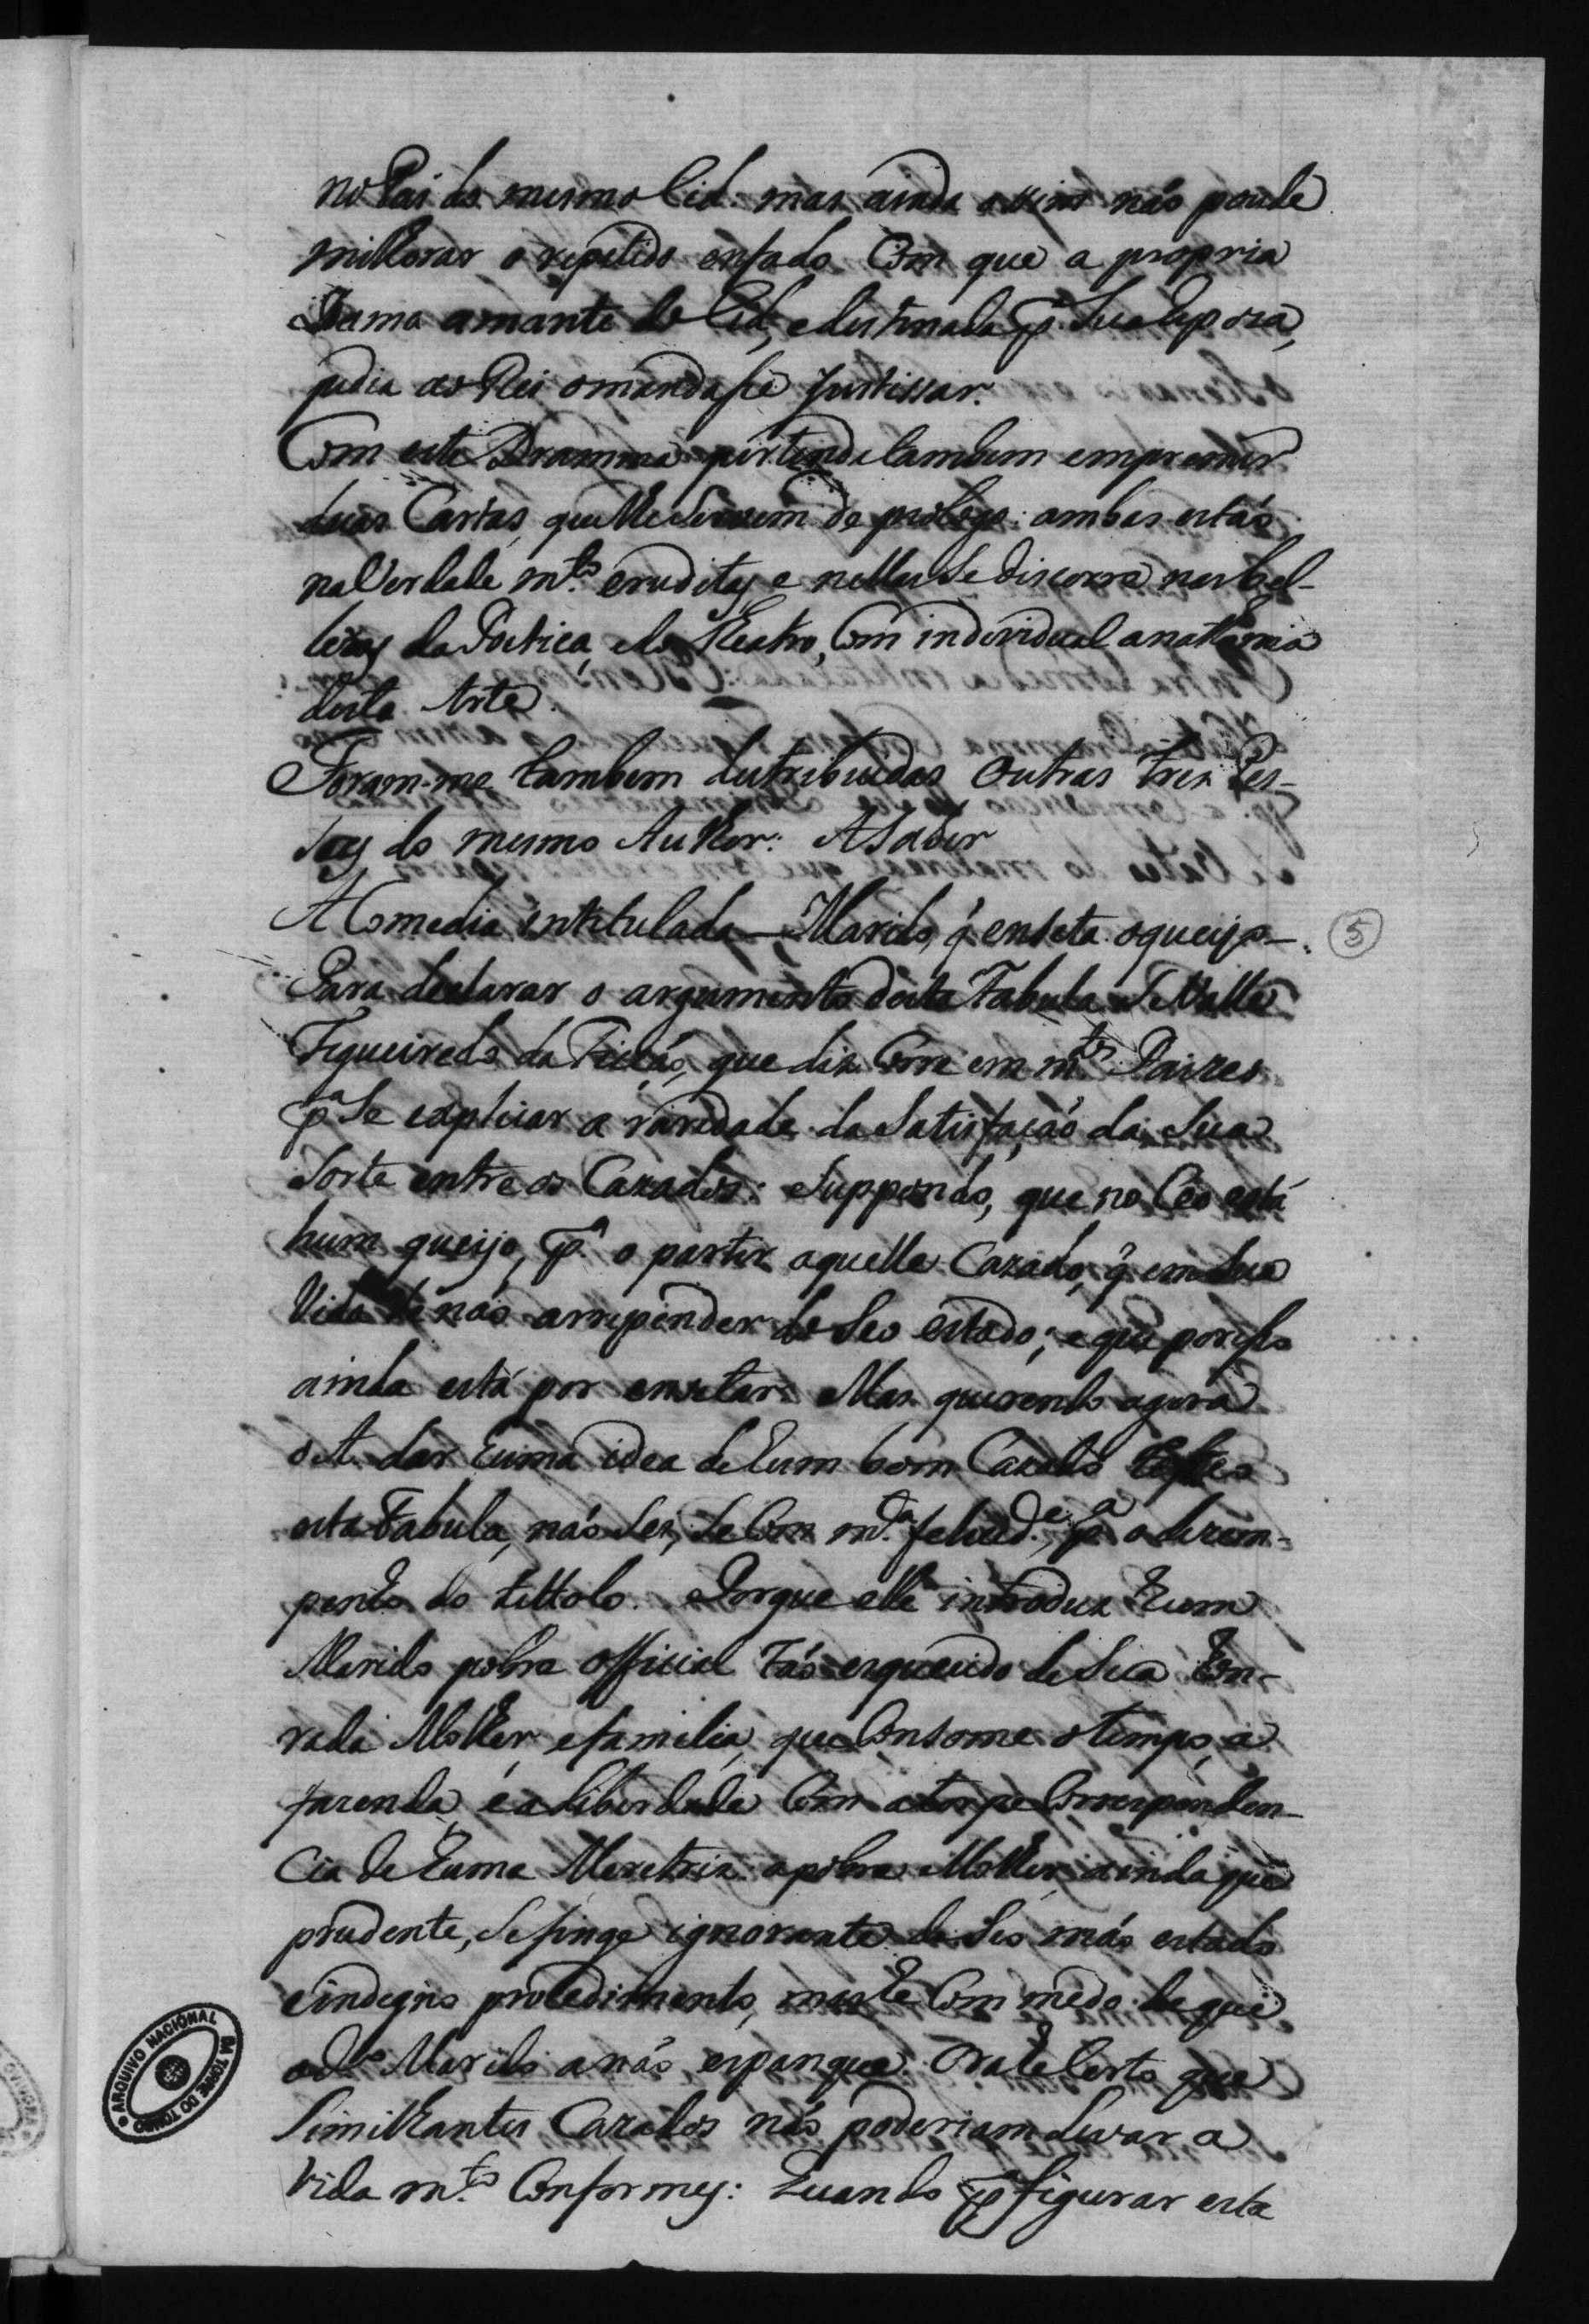 no Pai do mesmo Cid. mas ainda assim não poude
milhorar o repetido enfado Com que a propria
Dama amante do Cid, e destinada pª. Sua Espoza,
pedia ao Rei o mandasse Justissar.
Com este Dramma pertende tambem empremir
duas Cartas, que lhe Servem de prologo: ambas estão
na Verdade mtº. eruditas, e nellas Se discorre nas bel-
lezas da Poetica, e do Theatro, Com individual anathomia
desta Arte.
Foram-me tambem destribuidas Outras tres Pes-
sas do mesmo Author: A Saber
A Comedia intitulada — Marido, q̃ enseta o queijo —
Para declarar o argumento desta Fabula Se Valle
Figueiredo da Ficção, que diz Corre em mtºs. Paizes
pª Se explicar a raridade da Satisfação da Sua
Sorte entre os Cazados: Suppondo, que no Ceo está
hum queijo, pª. o partir aquelle Cazado, q̃ em Sua
Vida Se não arrepender do Seo estado; e que por isso
ainda está por ensetar. Mas querendo agora
o A. dar huma idea de hum bom Cazado
esta Fabula, não Sei, Se Com mtª. felicidᵉ., pª o dezem-
penho do tittolo. Porque elle introduz hum
Marido pobre official tão esquecido de Sua hon-
rada Molher, e familia, que Consome o tempo, a
fazenda, e a liberdade Com a torpe Corresponden-
cia de huma Meretriz. a pobre Molher, ainda que
prudente, Se finge ignorante do Seo máo estado
e indegno procedimento, Com medo de que
o dº. Marido a não espanque. Ora he Certo que
Similhantes Cazados não poderiam Levar a
Vida mtº. Conformes: Quando pª figurar esta
5
ARQUIVO NACIONAL DA TORRE DO TOMBO